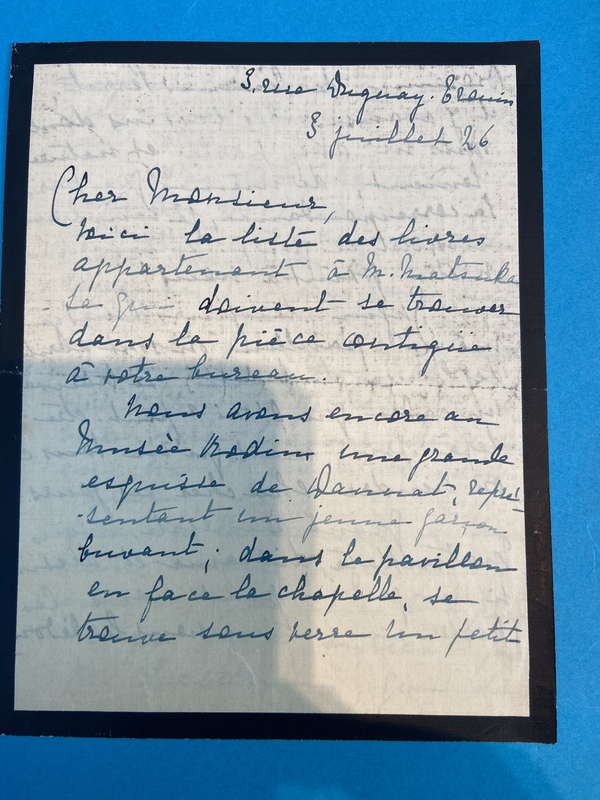 3, rue Duguay-Trouin
3 juillet 26
Cher Monsieur,
Voici la liste des livres
appartenant à M. Matsuka
ta qui doivent se trouver
dans la pièce contigüe
à votre bureau.
Nous avons encore au
Musée Rodin une grande
esquisse de Daumat, repré-
sentant un jeune garçon
buvant ; dans le pavillon
en face la chapelle, se
trouve sous verre un petit